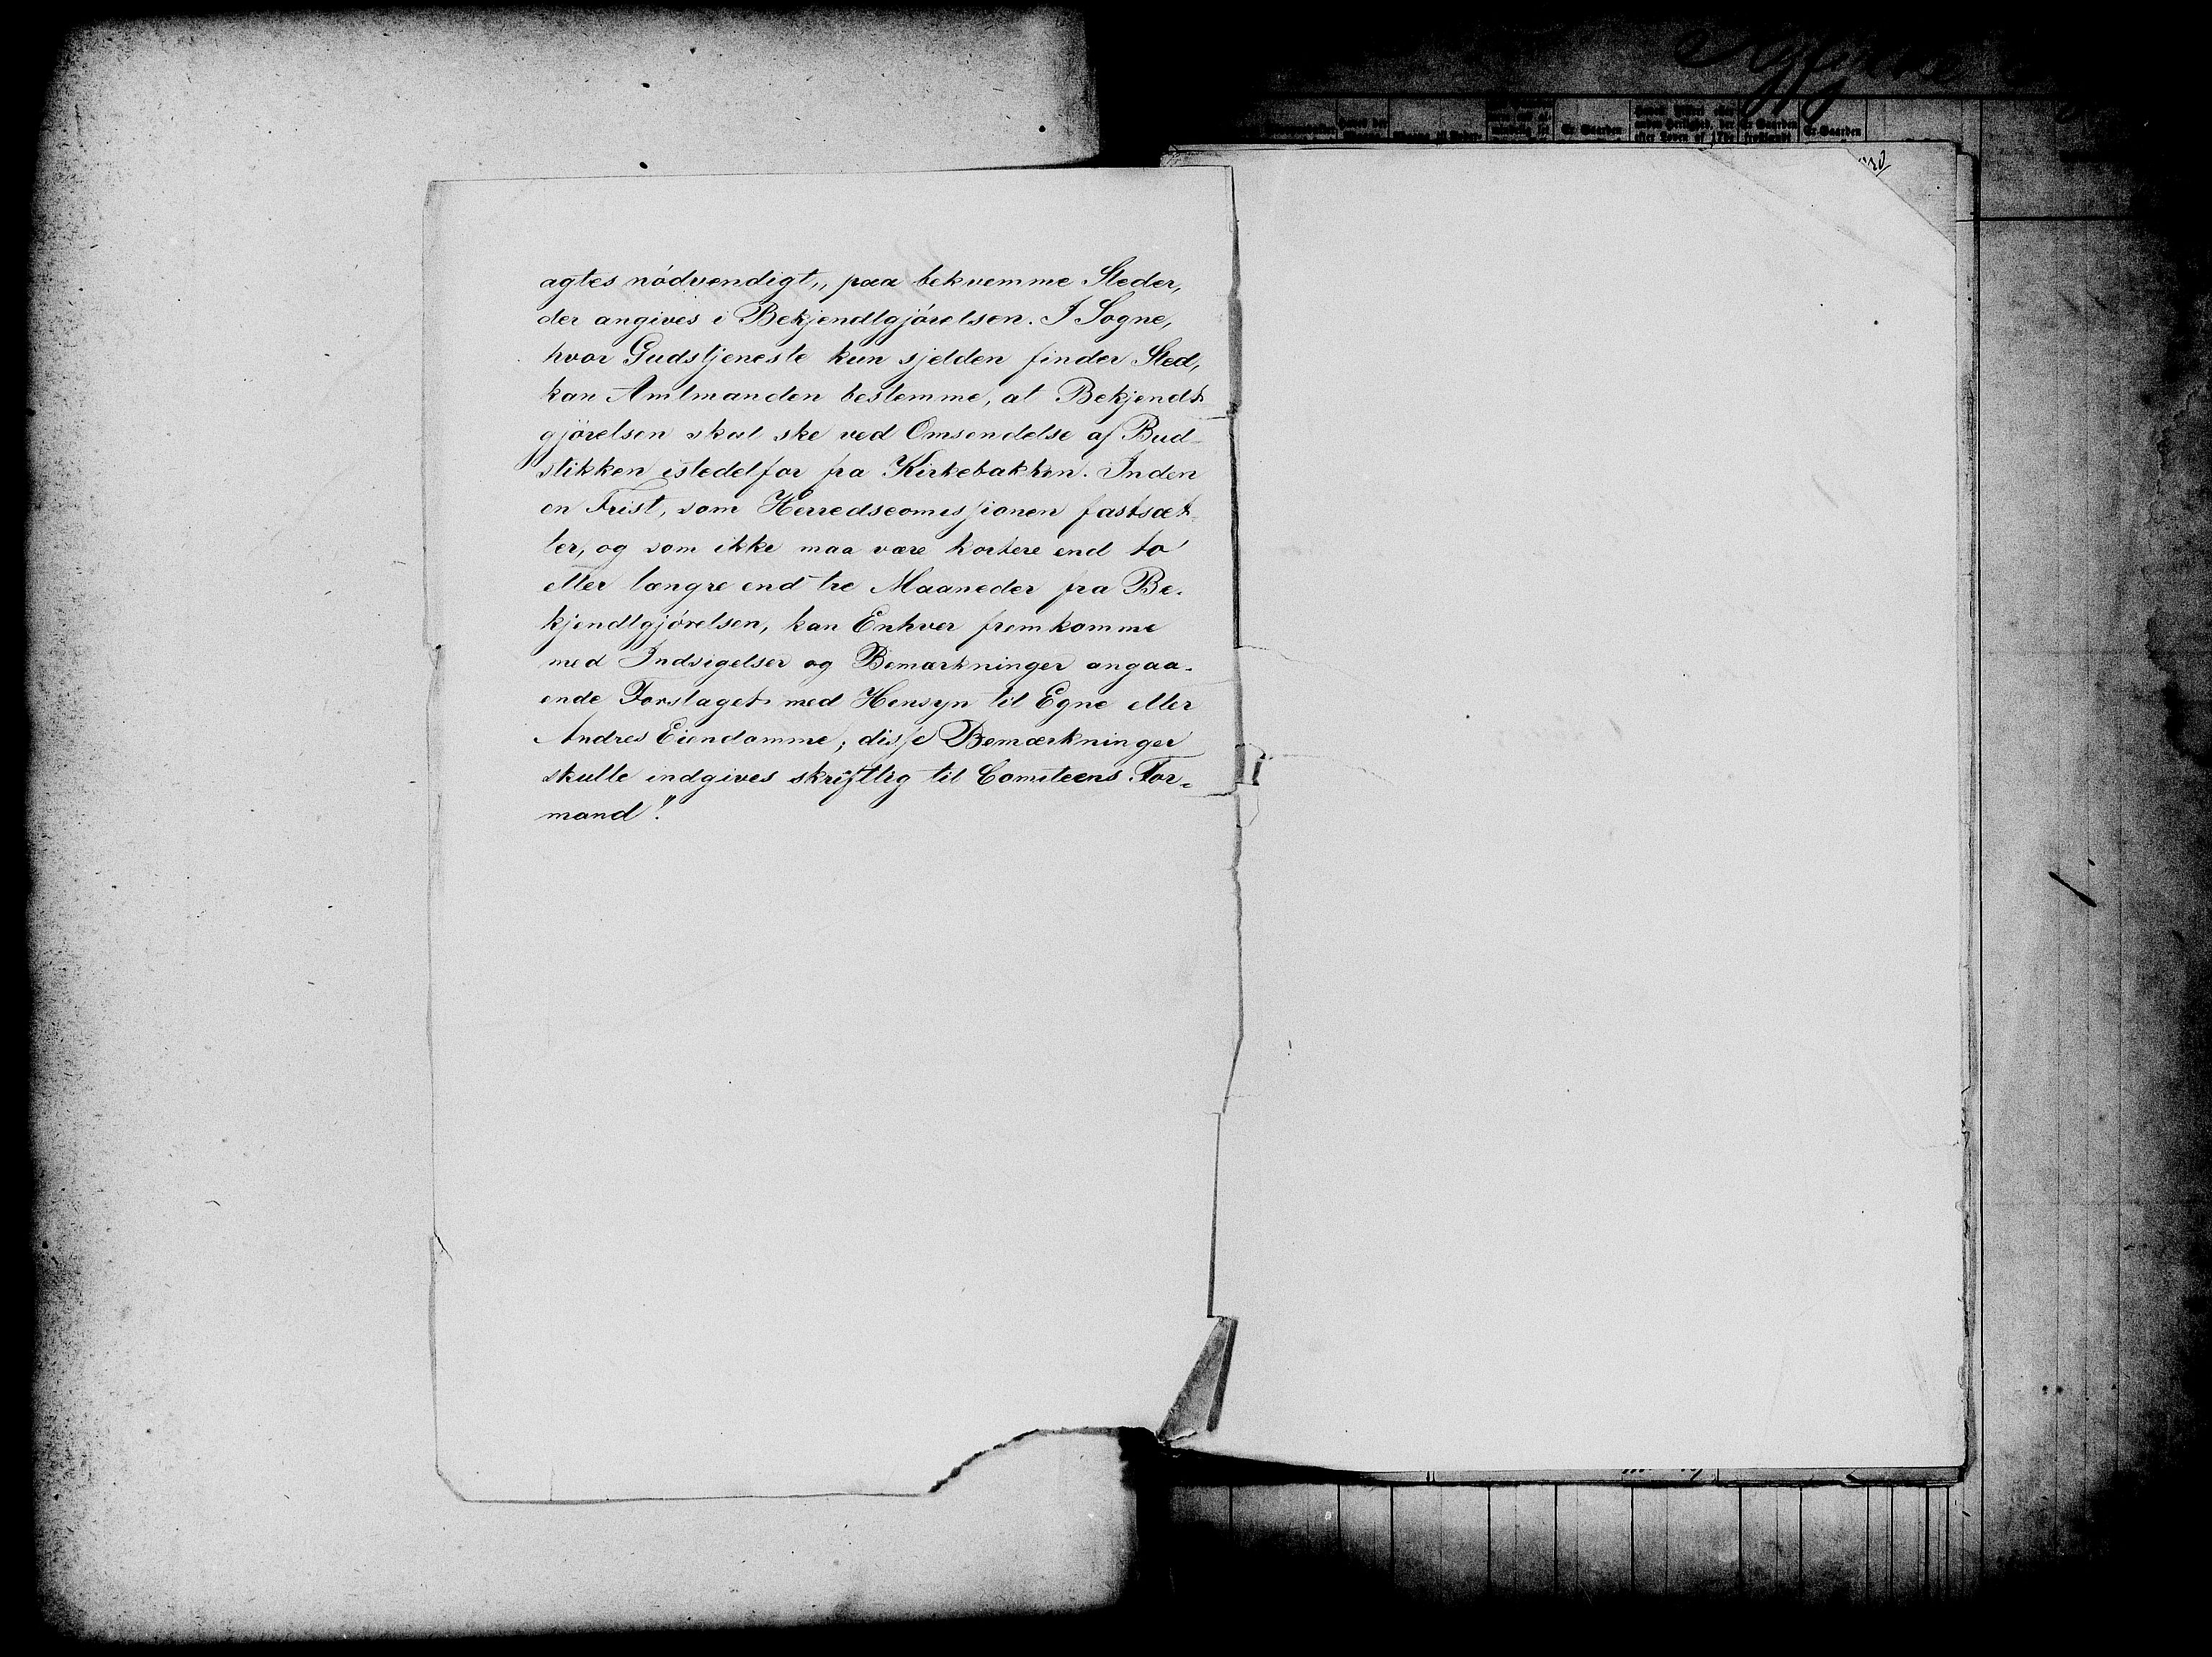 agtes nödvendigt,, paa bekvemme Steder,
der angives i Bekjendtgjörelsen. I Sogne,
hvor Gudstjeneste kun sjelden finder Sted,
kan Amtmanden bestemme, at Bekjendt-
gjörelsen skal ske ved Omsendelse af Bud-
stikken istedetfor fra Kirkebakken. Inden
en Frist, som Herredscomissionen fastsæt-
ter, og som ikke maa være kortere end to
eller længre end tre Maaneder fra Be-
kjendtgjörelsen, kan Enhver fremkomme
med Indsigelser og Bemærkninger angaa-
ende Forslaget med Hensyn til Egne eller
Andres Eiendomme; disse Bemærkninger
skulle indgives skriftlig til Comiteens For-
mand."
Er Gaarden
Er Gaarden
Er Gaarden